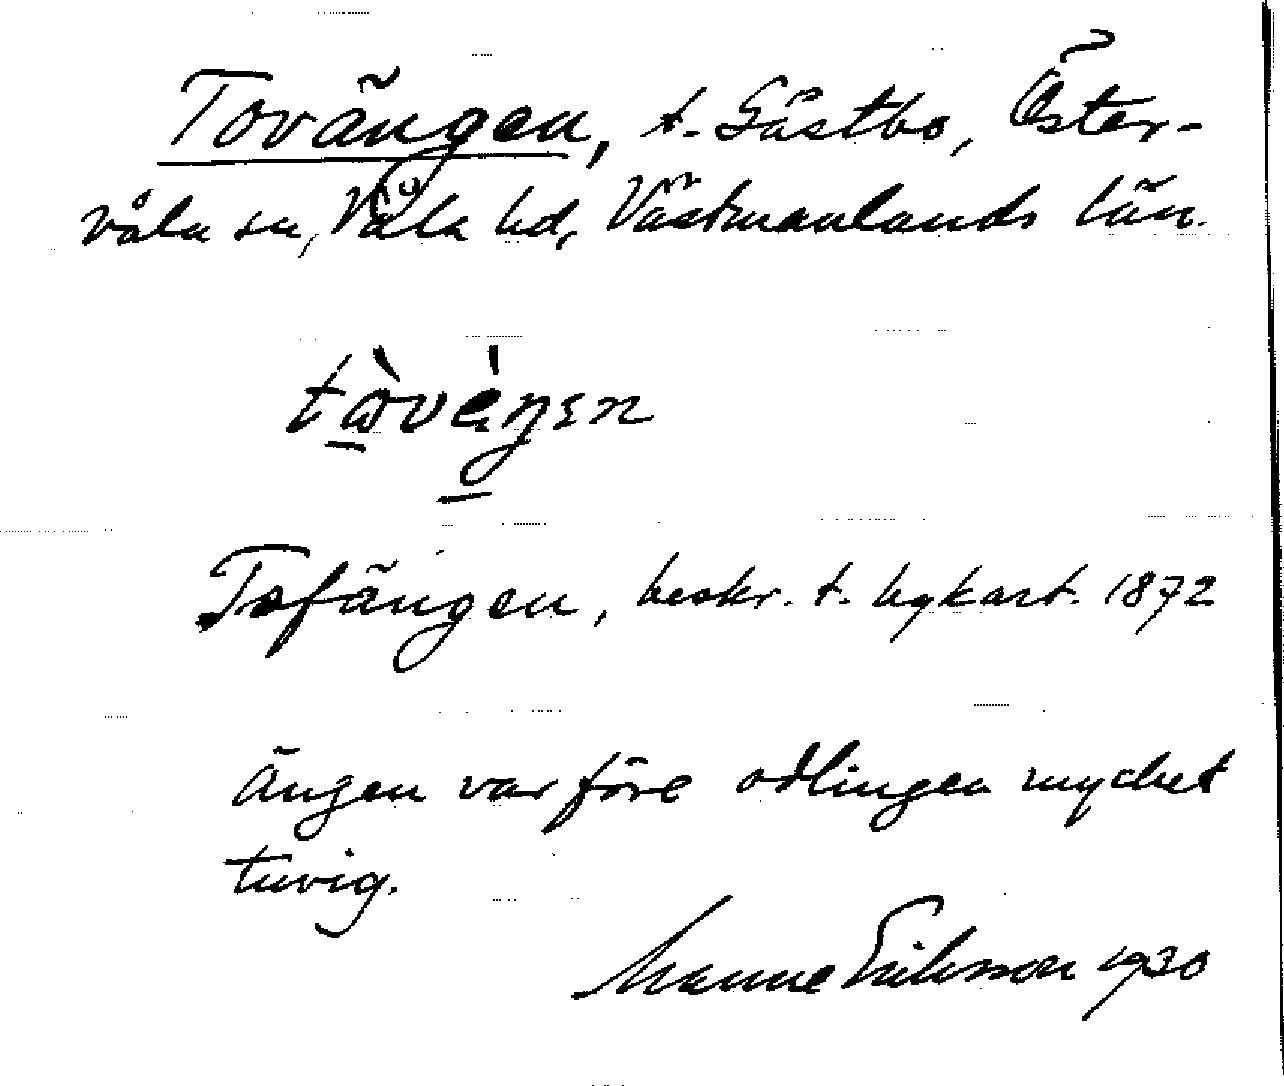 Tovängen, t. Gästbo, Öster-
våla sn, Våla hd, Västmanlands län.
tòvèŋɛn
Tofängen, beskr. t. hgkart. 1872
Ängen var före odlingen mycket
tuvig.
Manne Eriksson 1930